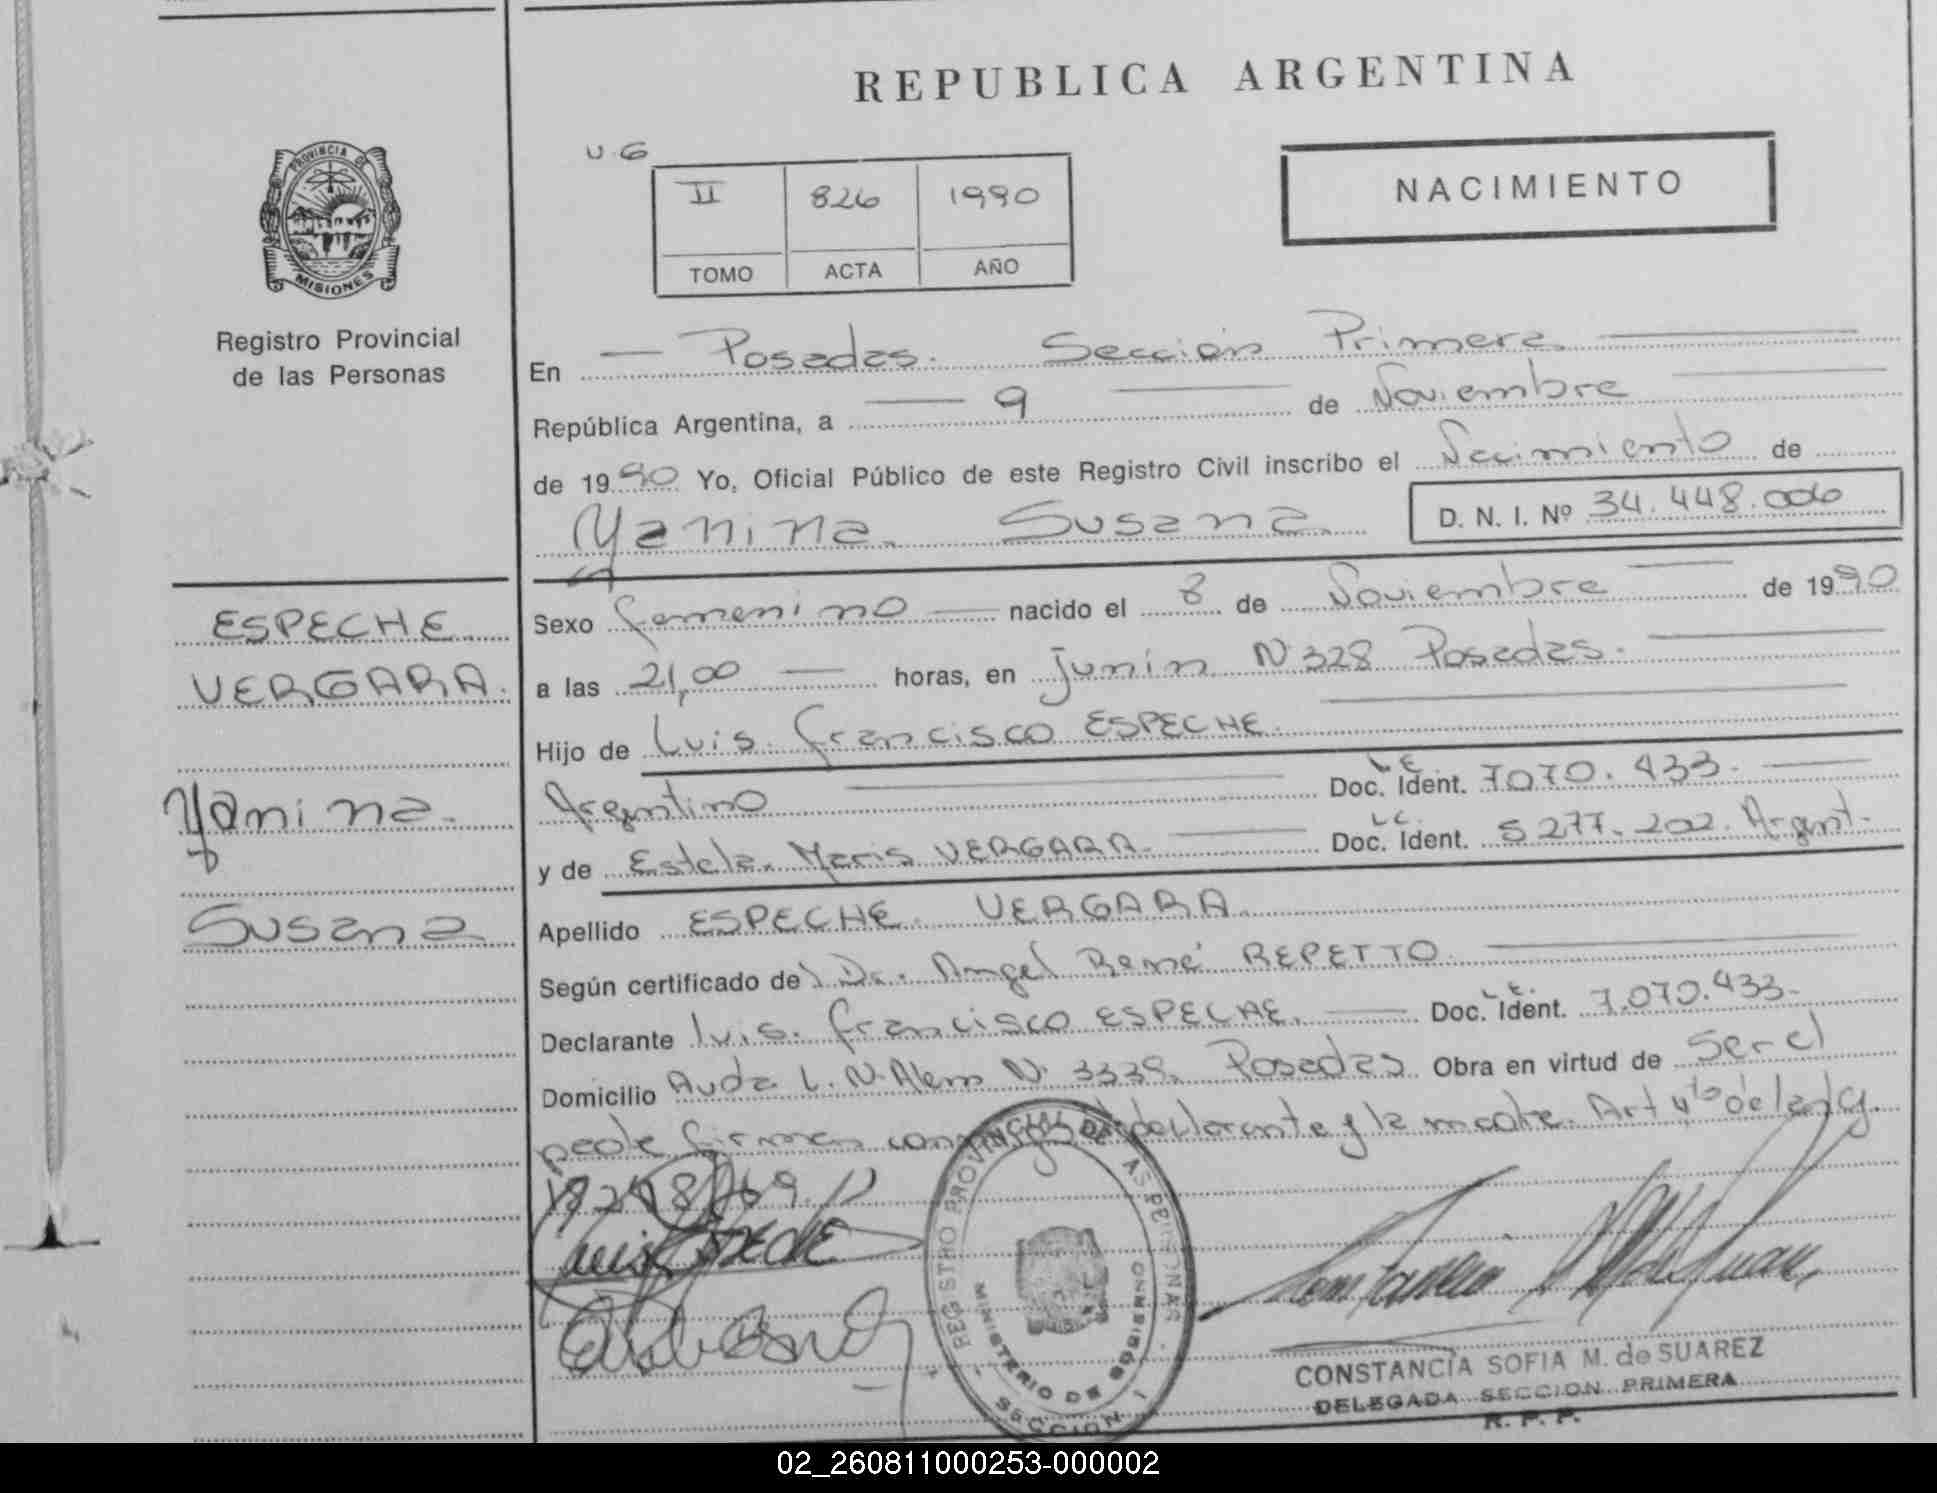 REPUBLICA ARGENTINA
PROVINCIA DE
MISIONES
Registro Provincial
de las Personas
U.G
II 826 1990
TOMO ACTA AÑO
NACIMIENTO
En Posadas. Sección Primera
República Argentina, a 9 de Noviembre
de 1990 Yo, Oficial Público de este Registro Civil inscribo el Nacimiento de
Yanina Susana D. N. I. Nº 34.448.006
ESPECHE
VERGARA.
Yanina
Susana
Sexo femenino nacido el 8 de Noviembre de 1990
a las 21,00 horas, en Junin N 328 Posadas.
Hijo de Luis Francisco ESPECHE.
Argentino L.E. Doc. Ident. 7070.433.
y de Estela Maris VERGARA L.C. Doc. Ident. 5277.202. Argent.
Apellido ESPECHE VERGARA
Según certificado del Dr. Angel René REPETTO
Declarante Luis Francisco ESPECHE. L.E. Doc. Ident. 7.070.433.
Domicilio Avda L. N. Alem N. 3339. Posadas Obra en virtud de Ser el
padre firman conmigo el declarante y la madre. Art 4to de la ley.
18248/69
Luis
REGISTRO PROVINCIAL DE LAS PERSONAS
MINISTERIO DE GOBIERNO
SECCION I
CONSTANCIA SOFIA M. de SUAREZ
DELEGADA SECCION PRIMERA
R. P. P.
02_260811000253-000002